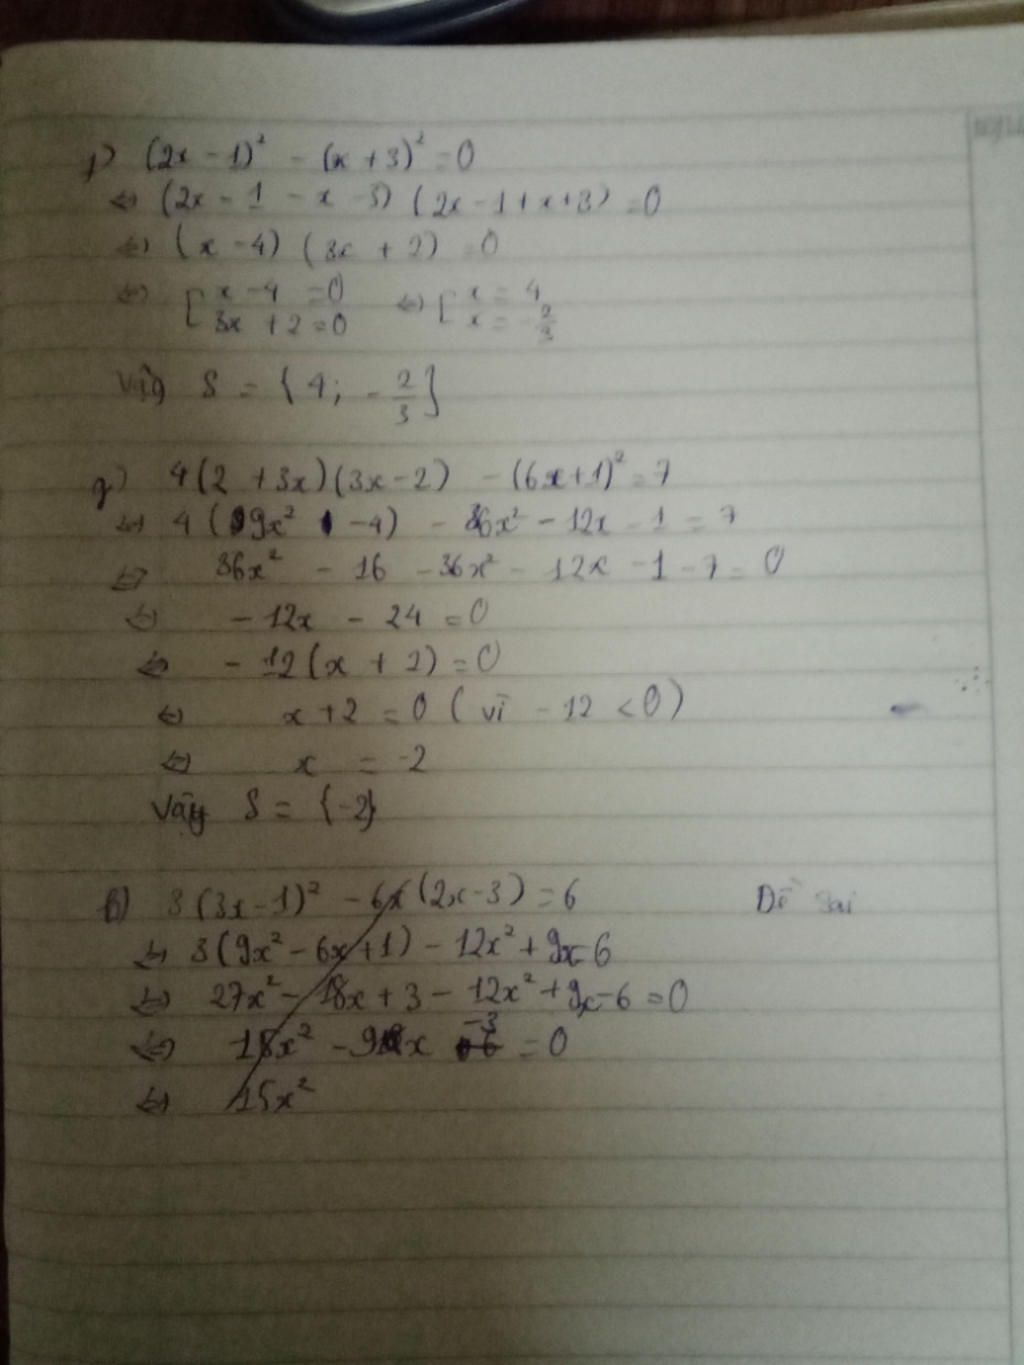 f) (2x - 1)² - (x + 3)² = 0
⇔ (2x - 1 - x - 3) (2x - 1 + x + 3) = 0
⇔ (x - 4) (3x + 2) = 0
⇔ [ x - 4 = 0 ⇔ [ x = 4
3x + 2 = 0 x = -2/3
Vậy S = {4; -2/3}
g) 4(2 + 3x)(3x - 2) - (6x + 1)² = 7
⇔ 4(9x² - 4) - 36x² - 12x - 1 = 7
⇔ 36x² - 16 - 36x² - 12x - 1 - 7 = 0
⇔ - 12x - 24 = 0
⇔ - 12(x + 2) = 0
⇔ x + 2 = 0 (vì - 12 < 0)
⇔ x = -2
Vậy S = {-2}
h) 3(3x - 1)² - 6x(2x - 3) = 6 Đề sai
⇔ 3(9x² - 6x + 1) - 12x² + 9x = 6
⇔ 27x² - 18x + 3 - 12x² + 9x - 6 = 0
⇔ 15x² - 9x - 3 = 0
⇔ 15x²